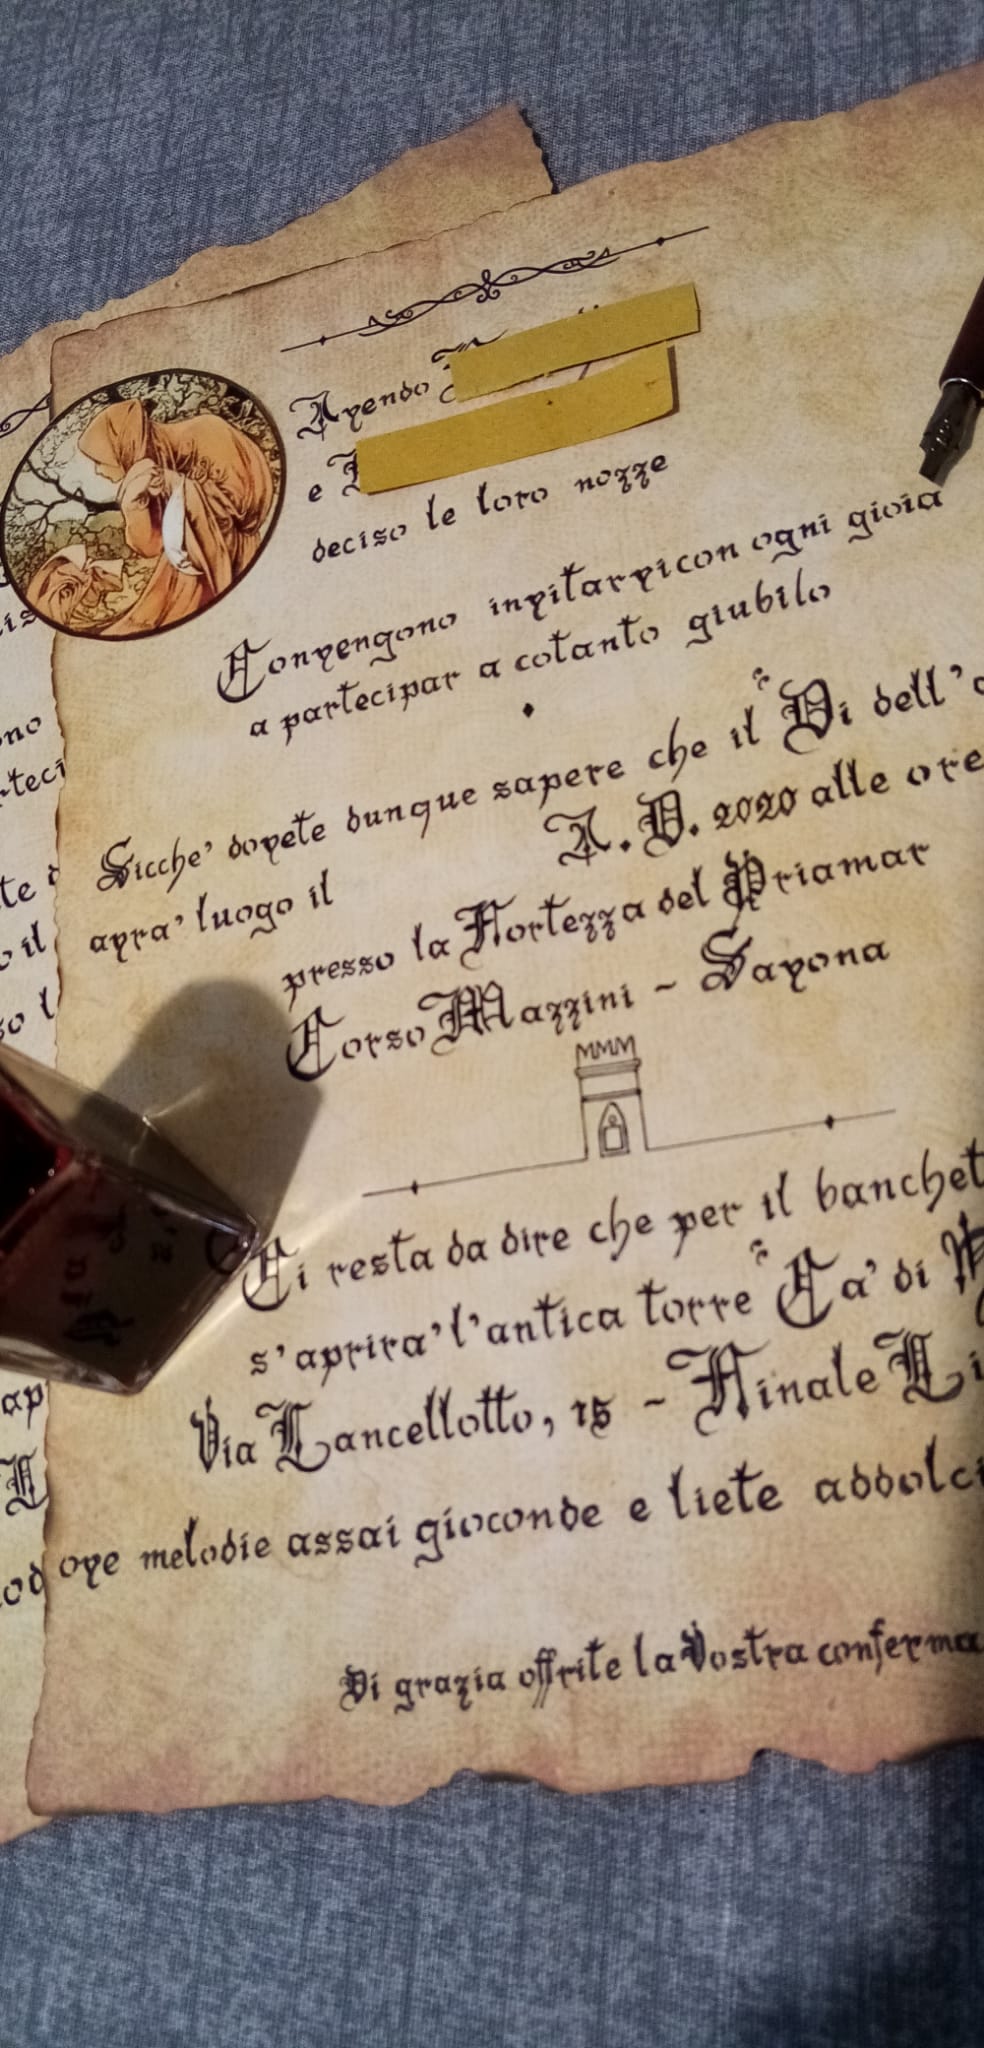 Avendo
e
deciso le loro nozze
Convengono invitarvi con ogni gioia
a partecipar a cotanto giubilo
Sicche' dovete dunque sapere che il "Di dell'
avra' luogo il A. D. 2020 alle ore
presso la Fortezza del Priamar
Corso Mazzini ~ Savona
Ci resta da dire che per il banchet
s'aprira' l'antica torre "Ca' di
Via Lancellotto, 15 ~ Finale Li
ove melodie assai gioconde e liete addolci
Di grazia offrite la Vostra conferma